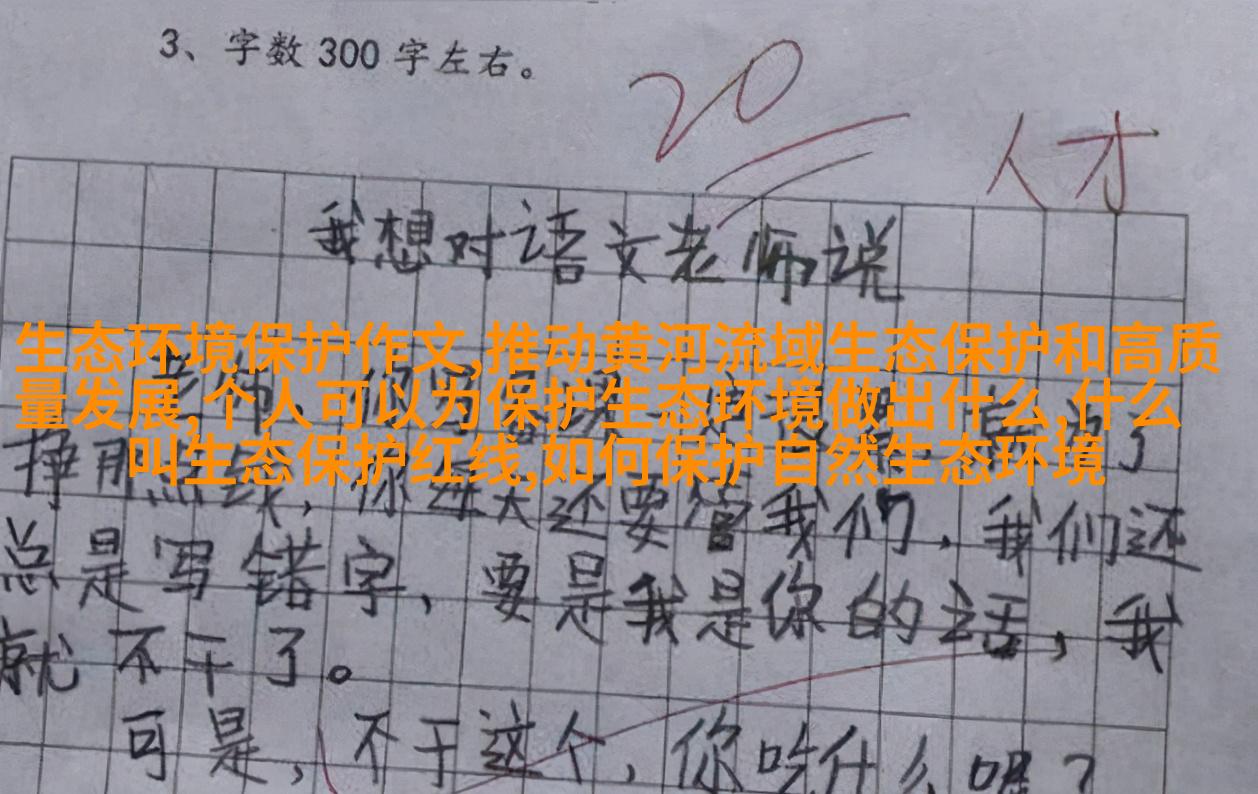 3、字数300字左右。
20
人才
我想对语文老师说
生态环境保护作文,推动黄河流域生态保护和高质
量发展,个人可以为保护生态环境做出什么,什么
叫生态保护红线,如何保护自然生态环境
挣那点钱,你每天还要管我们,我们还
总是写错字,要是我是你的话,我
就不干了。
可是,不干这个,你吃什么呢?